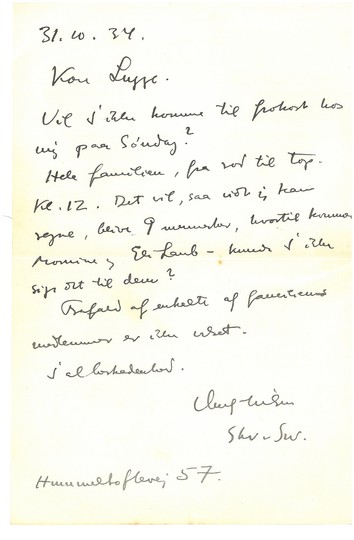 31.10.34.
Kære Lugge.
Vil I ikke komme til frokost hos
mig paa Søndag?
Hele familien, fra rod til top.
Kl. 12. Det vil, saa vidt jeg kan
regne, blive 9 mennesker, hvortil kommer
og Laub – kunde I ikke
sige det til dem?
Frafald af enkelte af familiens
medlemmer er ikke udset.
I al beskedenhed.
Himmeltoftevej 57.